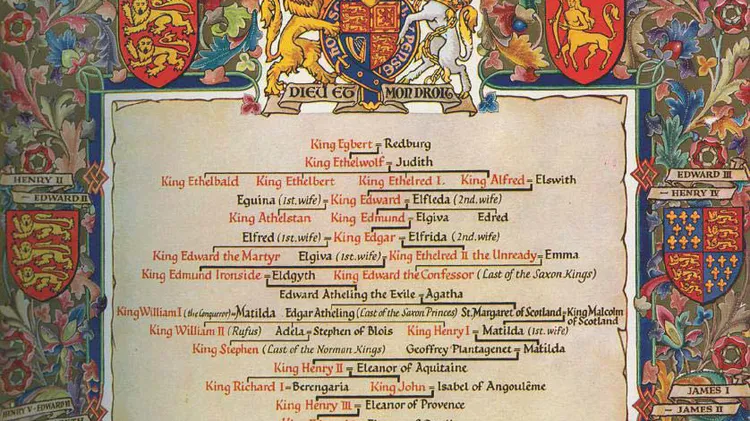 DIEU ET MON DROIT
King Egbert = Redburg
King Ethelwolf = Judith
King Ethelbald King Ethelbert King Ethelred I. King Alfred = Elswith
Eguina (1st. wife) = King Edward = Elfleda (2nd. wife)
King Athelstan King Edmund = Elgiva Edred
Elfred (1st. wife) = King Edgar = Elfrida (2nd. wife)
King Edward the Martyr Elgiva (1st. wife) = King Ethelred II the Unready = Emma
King Edmund Ironside = Eldgyth King Edward the Confessor (Last of the Saxon Kings)
Edward Atheling the Exile = Agatha
King William I (the Conqueror) = Matilda Edgar Atheling (Last of the Saxon Princes) St. Margaret of Scotland = King Malcolm of Scotland
King William II (Rufus) Adela = Stephen of Blois King Henry I = Matilda (1st. wife)
King Stephen (Last of the Norman Kings) Geoffrey Plantagenet = Matilda
King Henry II = Eleanor of Aquitaine
King Richard I = Berengaria King John = Isabel of Angoulême
King Henry III = Eleanor of Provence
HENRY II
EDWARD II
EDWARD III
HENRY IV
HENRY V - EDWARD VI
JAMES I
JAMES II